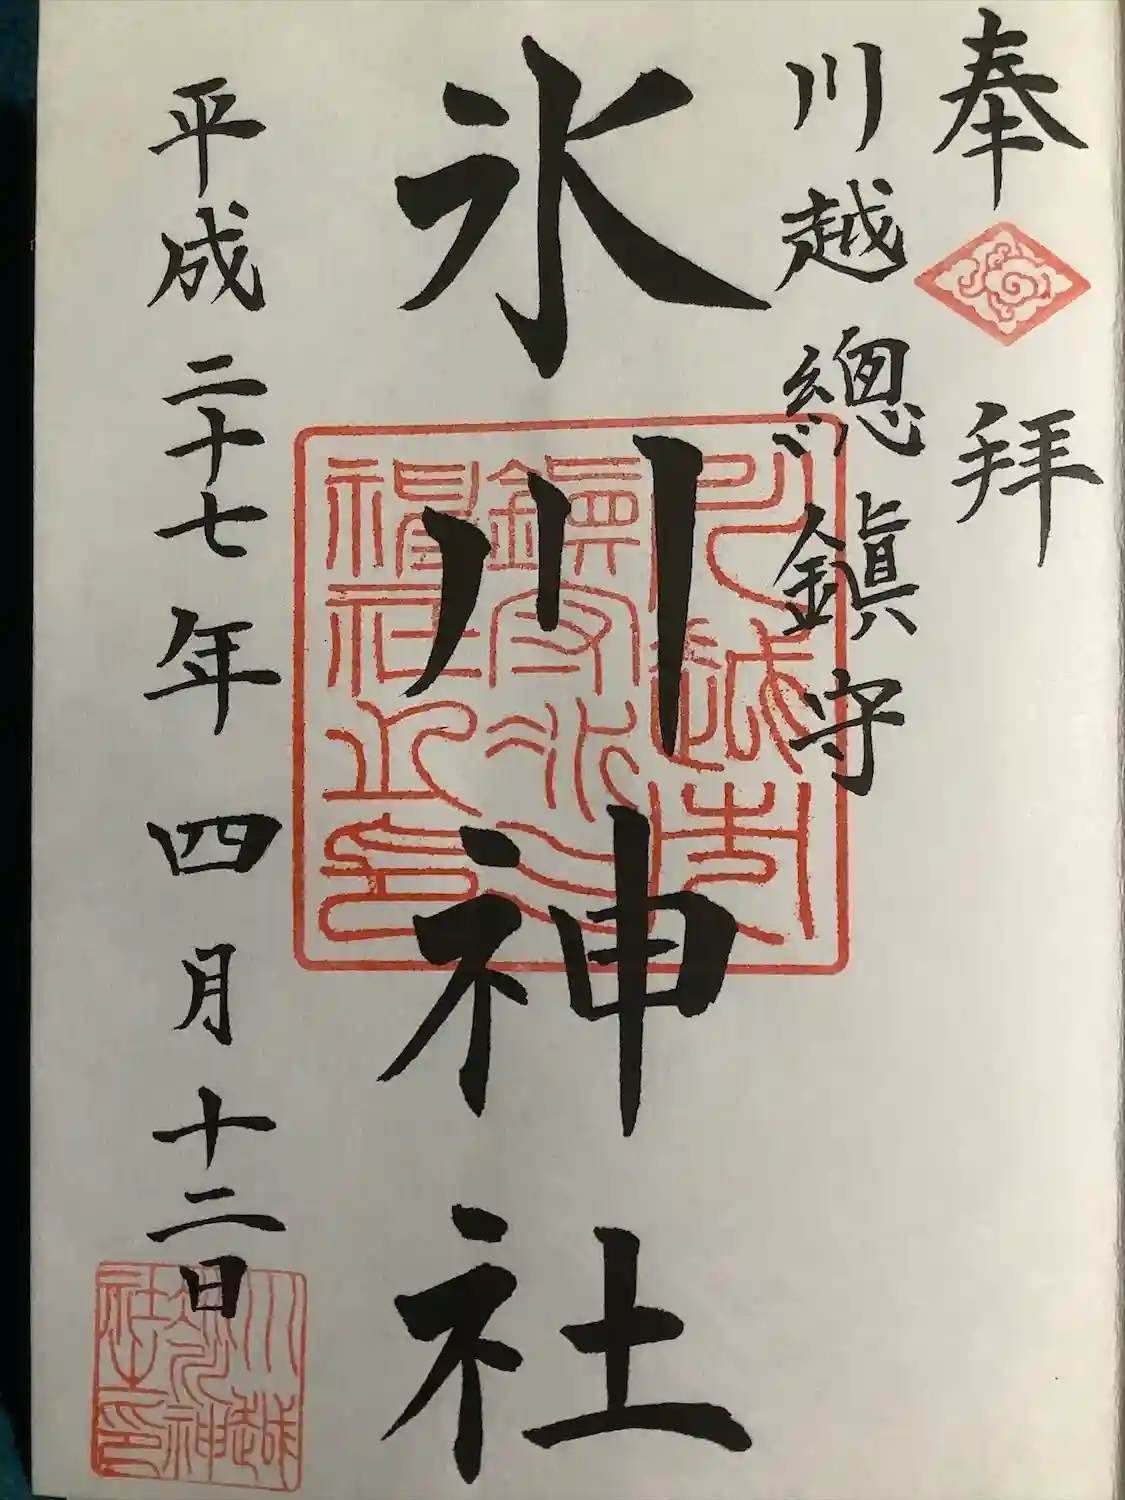 奉拝
川越總鎮守
氷川神社
平成二十七年四月十二日